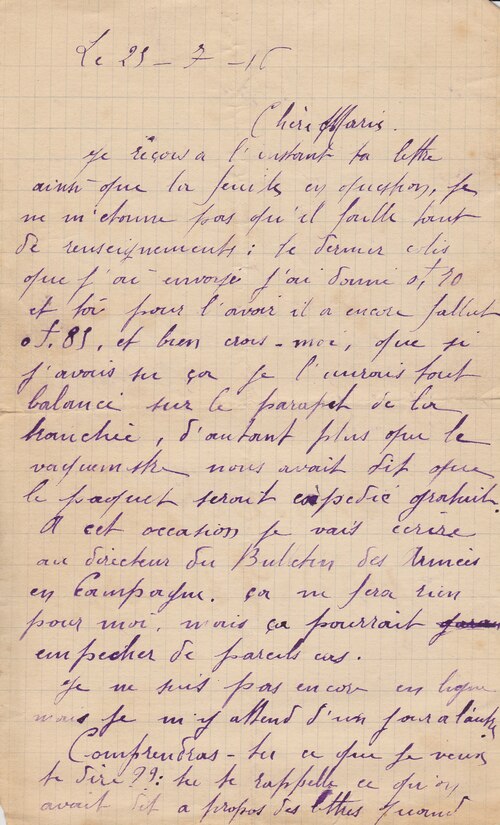 Le 25 - 7 - 16
Chère Marie.
Je reçois a l'instant ta lettre
ainsi que la feuille en question, Je
ne m'étonne pas qu'il faille tant
de renseignements : le dernier colis
que j'ai envoyé j'ai donné 0,f 70
et toi pour l'avoir il a encore fallut
0f.85, et bien crois-moi, que si
j'avais su ça je l'aurais tout
balancé sur le parapet de la
tranchée, d'autant plus que le
vaguemestre nous avait dit que
le paquet serait expedié gratuit.
A cet occasion je vais écrire
au directeur du Bulletin des Armées
en Campagne. ça ne fera rien
pour moi, mais ça pourrait
empecher de pareils cas.
Je ne suis pas encore en ligne
mais je m'y attend d'un jour a l'autre
Comprendras-tu ce que je veux
te dire ??: tu te rappelle ce qu'on
avait dit a propos des lettres quand